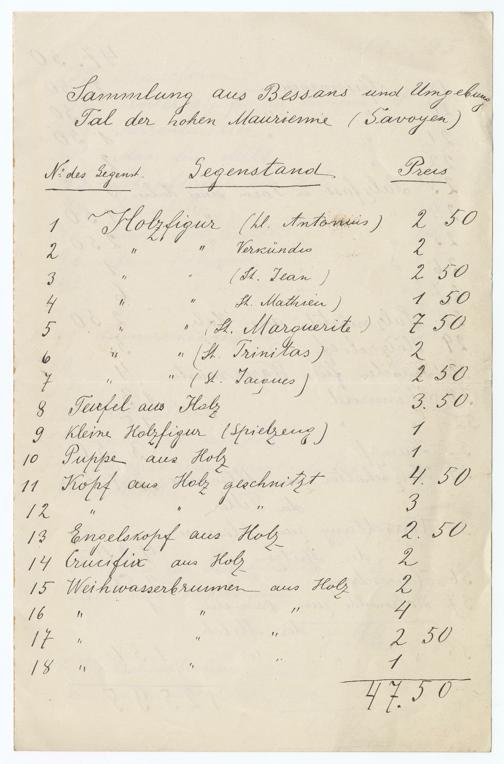 Sammlung aus Bessans und Umgebung
Tal der hohen Maurienne (Savoyen)
No. des Gegenst. Gegenstand Preis
1 Holzfigur (hl. Antonius) 2 50
2 " " Verkündis 2
3 " " (St. Jean) 2 50
4 " " St. Mathieu) 1 50
5 " " (St. Marguerite) 7 50
6 " " (St. Trinitas) 2
7 " " (St. Jacques) 2 50
8 Teufel aus Holz 3. 50.
9 Kleine Holzfigur (Spielzeug) 1
10 Puppe aus Holz 1
11 Kopf aus Holz geschnitzt 4. 50
12 " " " 3
13 Engelskopf aus Holz 2. 50
14 Crucifix aus Holz 2
15 Weihwasserbrunnen aus Holz 2
16 " " " 4
17 " " " 2 50
18 " " " 1
47. 50